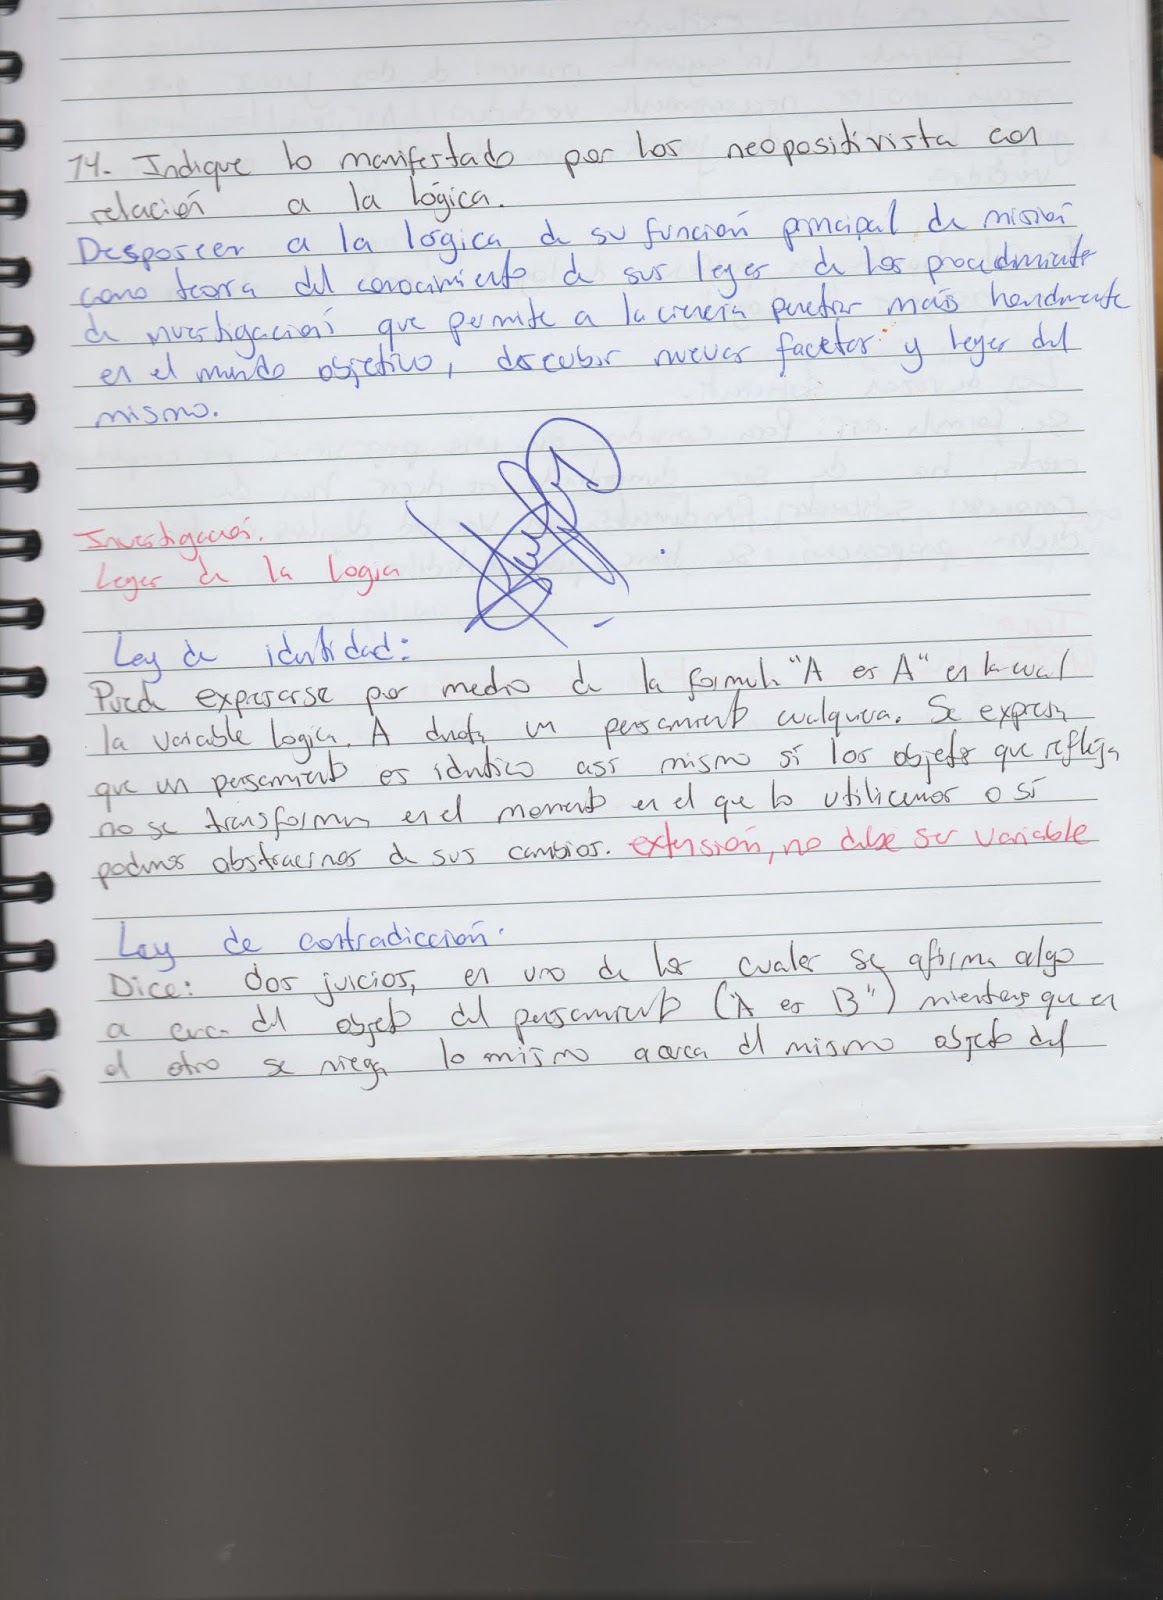 14. Indique lo manifestado por los neopositivista con
relación a la lógica.
Desposeer a la lógica de su función principal, de misión
como teoría del conocimiento de sus leyes de los procedimiento
de investigación que permite a la ciencia penetrar más hondmente
en el mundo objetivo, descubrir nuevas facetas y leyes del
mismo.
Investigación.
Leyes de la logica
Ley de identidad:
Puede expresarse por medio de la formula "A es A" en la cual
la variable logica. A denota un pensamiento cualquiera. Se expresa
que un pensamiento es identico asi mismo si los objetos que refleja
no se transforman en el momento en el que lo utilicemos o si
podemos abstraernos de sus cambios. extensión, no debe ser variable
Ley de contradicción.
Dice: dos juicios, en uno de los cuales se afirma algo
a cerca del objeto del pensamiento ("A es B") mientras que en
el otro se niega lo mismo acerca del mismo objeto del